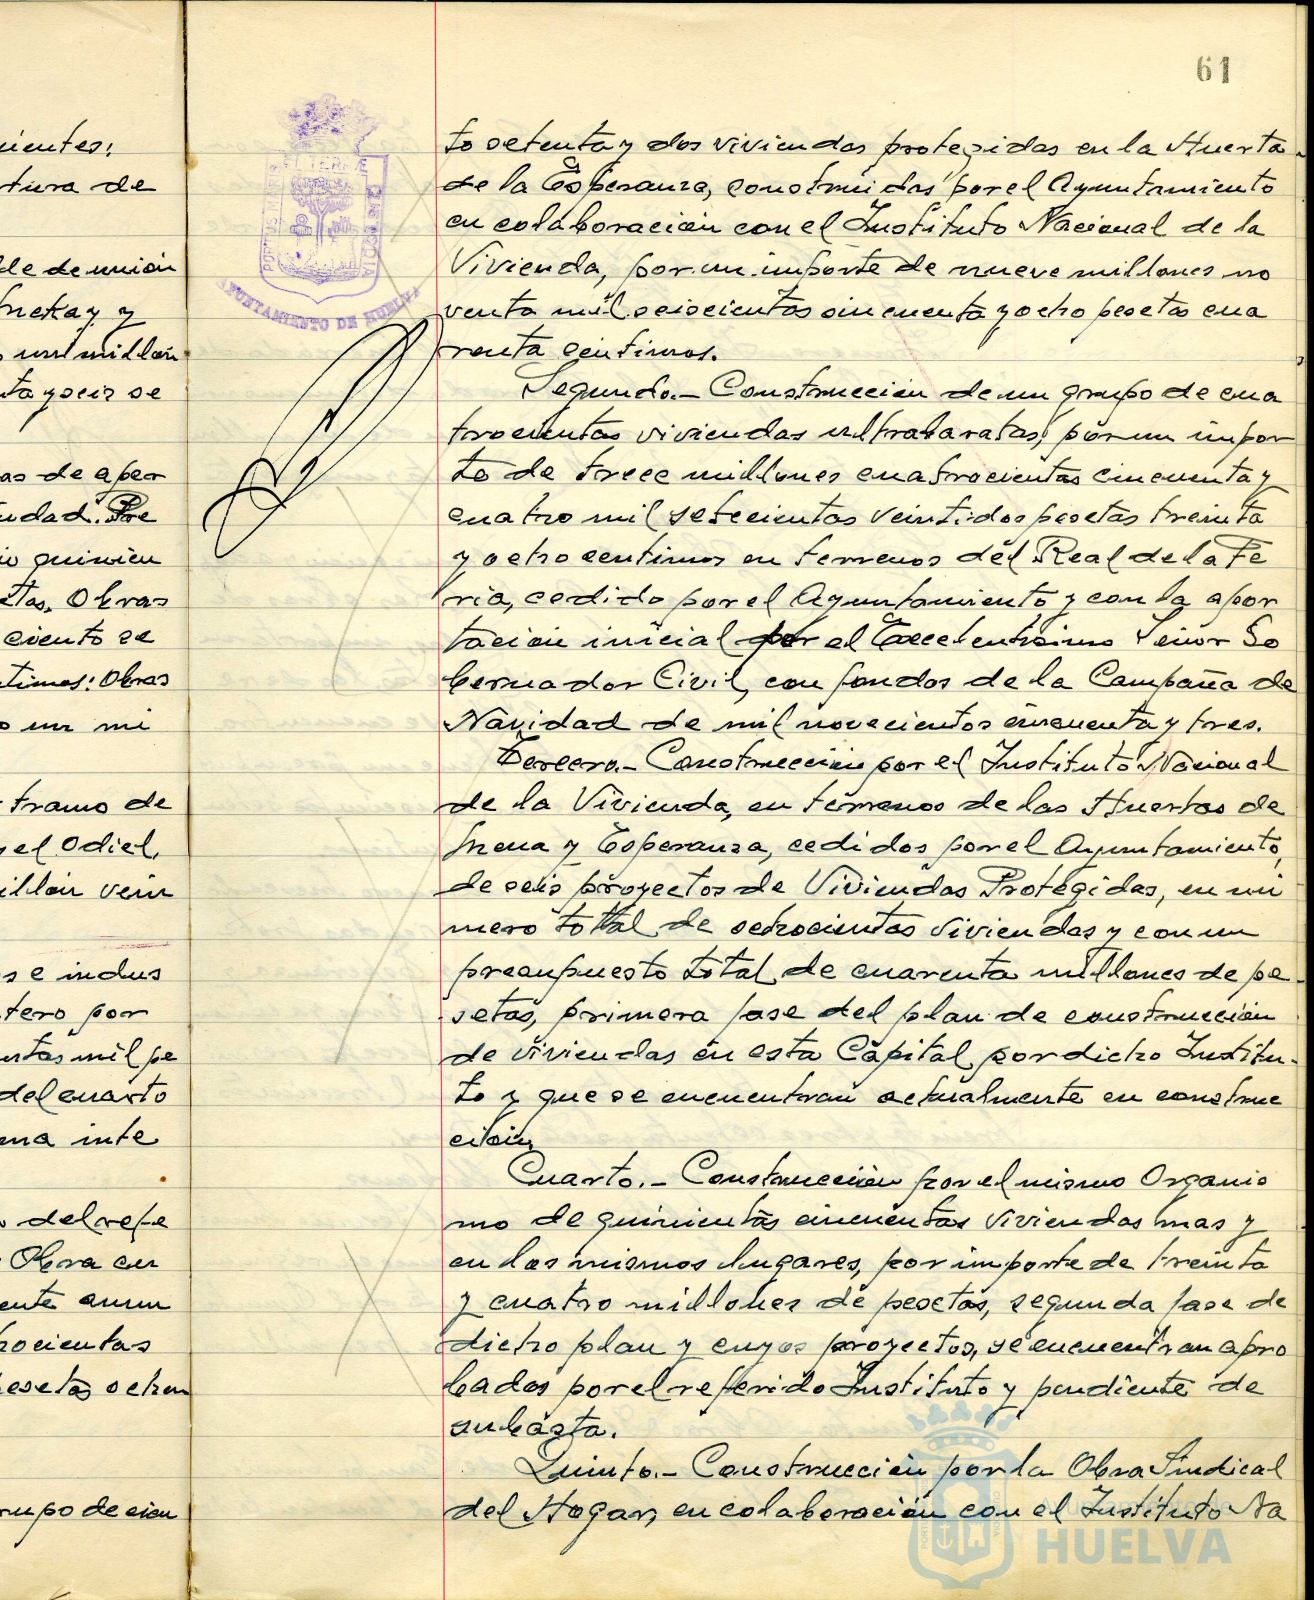 61
to setenta y dos viviendas protegidas en la Huerta
de la Esperanza, construidas por el Ayuntamiento
en colaboración con el Instituto Nacional de la
Vivienda, por un importe de nueve millones no
venta mil seiscientas cincuenta y ocho pesetas cua
renta céntimos.
Segundo.- Construcción de un grupo de cua
trocientas viviendas ultrabaratas, por un impor
te de trece millones cuatrocientas cincuenta y
cuatro mil setecientas veintidos pesetas treinta
y ocho centimos en terrenos del Real de la Fe
ria, cedido por el Ayuntamiento y con la apor
tación inicial por el Excelentisimo Señor Go
bernador Civil, con fondos de la Campaña de
Navidad de mil novecientos cincuenta y tres.
Tercero.- Construcción por el Instituto Nacional
de la Vivienda, en terrenos de las Huertas de
Mena y Esperanza, cedidos por el Ayuntamiento,
de seis proyectos de Viviendas Protegidas, en nú
mero total de ochocientas viviendas y con un
presupuesto total de cuarenta millones de pe-
setas, primera fase del plan de construcción
de viviendas en esta Capital por dicho Institu-
to y que se encuentran actualmente en construc
ción.
Cuarto.- Construcción por el mismo Organis
mo de quinientas cincuentas viviendas mas y
en los mismos lugares, por importe de treinta
y cuatro millones de pesetas, segunda fase de
dicho plan y cuyos proyectos, se encuentran apro
bados por el referido Instituto y pendiente de
subasta.
Quinto.- Construcción por la Obra Sindical
del Hogar, en colaboración con el Instituto Na
nientes:
tura de
de de unión
y
un millón
ta y seis se
as de aper
udad. Pre
quinien
tas. Obras
ciento se
timos: Obras
un mi
tramo de
y el Odiel,
illón vein
s e indus
tero por
ntas mil pe
del cuarto
ma inte
del refe
Obra en
ente anun
rocientas
esetas ochen
rupo de cien
AYUNTAMIENTO DE HUELVA
Ayuntamiento de
HUELVA